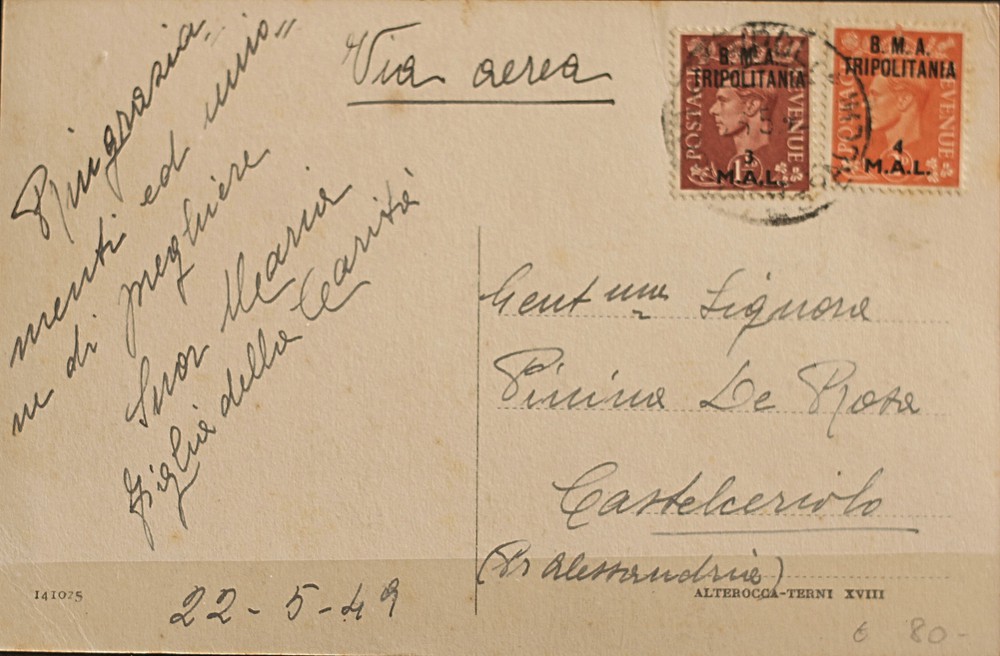 Ringrazia-
menti ed unio=
ni di preghiere
Suor Maria
Figlia della Carità
Via aerea
B. M. A.
TRIPOLITANIA
POSTAGE REVENUE
3
M.A.L.
B. M. A.
TRIPOLITANIA
POSTAGE REVENUE
4
M.A.L.
Gent ma Signora
Pinina De Rosa
Castelceriolo
(Pr Alessandria)
141025
22-5-49
ALTEROCCA-TERNI XVIII
€ 80-